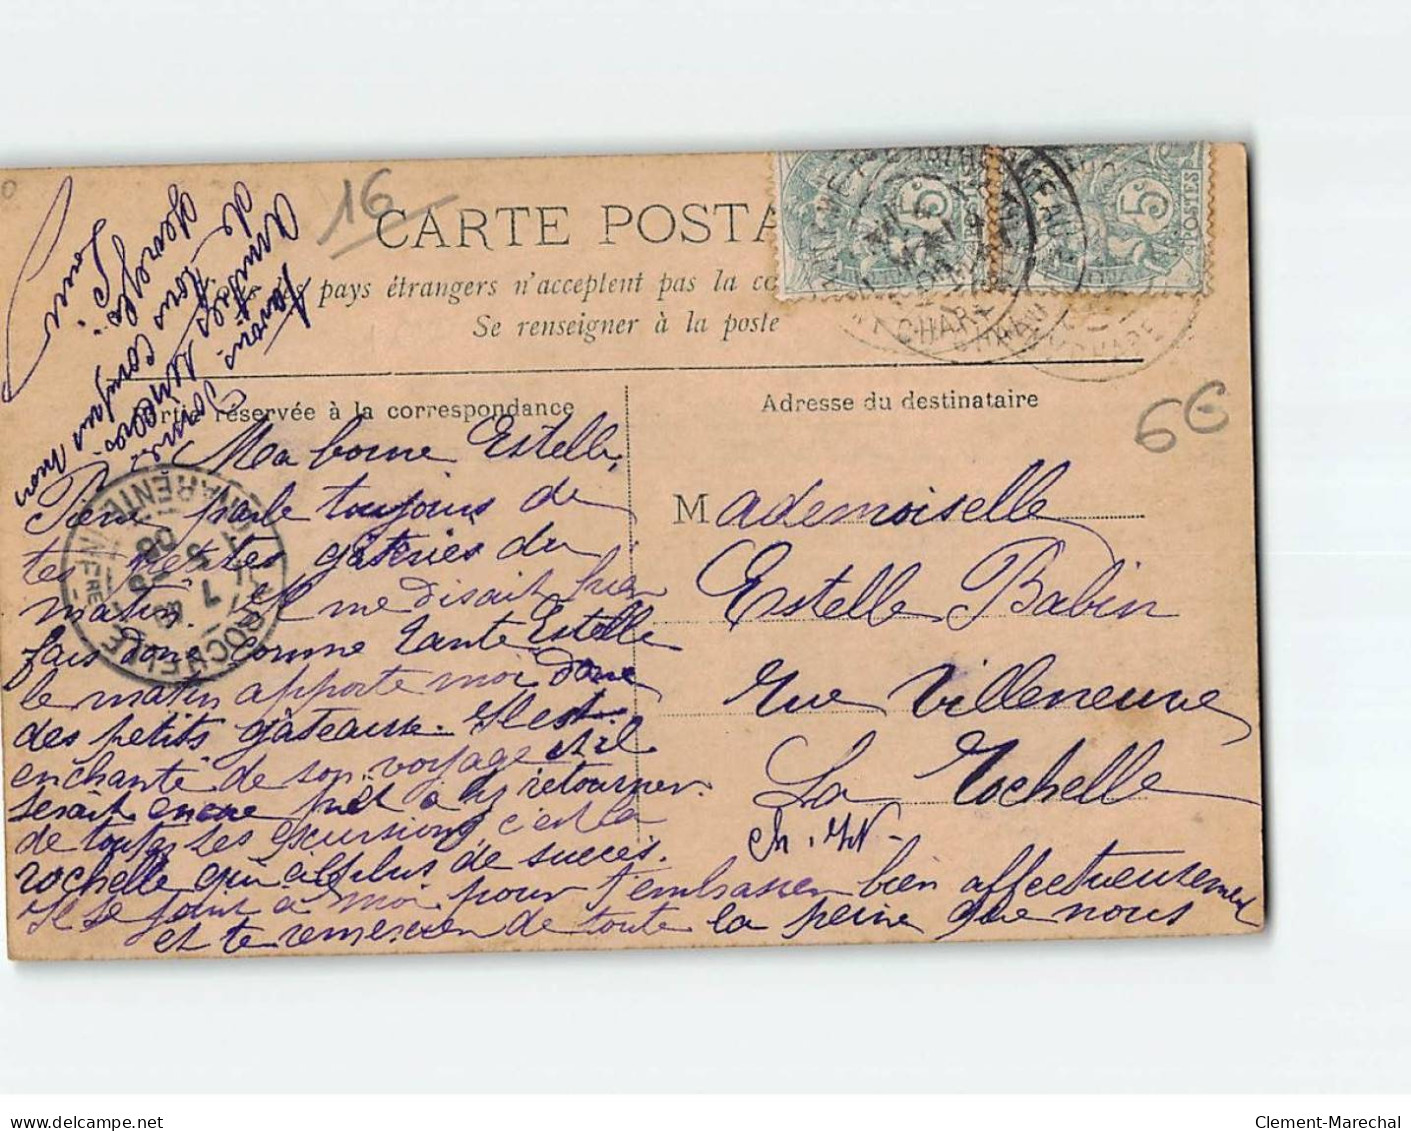 16
CARTE POSTA
pays étrangers n'acceptent pas la co
Se renseigner à la poste
Partie réservée à la correspondance
Adresse du destinataire
66
Ma bonne Estelle,
Pierre parle toujours de
tes petites gâteries du
matin. Il me disait hier
fais donc comme tante Estelle
le matin apporte moi donc
des petits gâteaux. Il est
enchanté de son voyage et il
serait encore prêt à y retourner.
de toutes ses excursions c'est la
rochelle qui a le plus de succès.
Il se joint à moi pour t'embrasser bien affectueusement
et te remercier de toute la peine que nous
Mademoiselle
Estelle Babin
rue Villeneuve
La Rochelle
Ch. Inf.
amitiés
de tous
Louis
LA ROCHELLE
CHARENTE INFRE
5c
5c
POSTES
Clement-Marechal